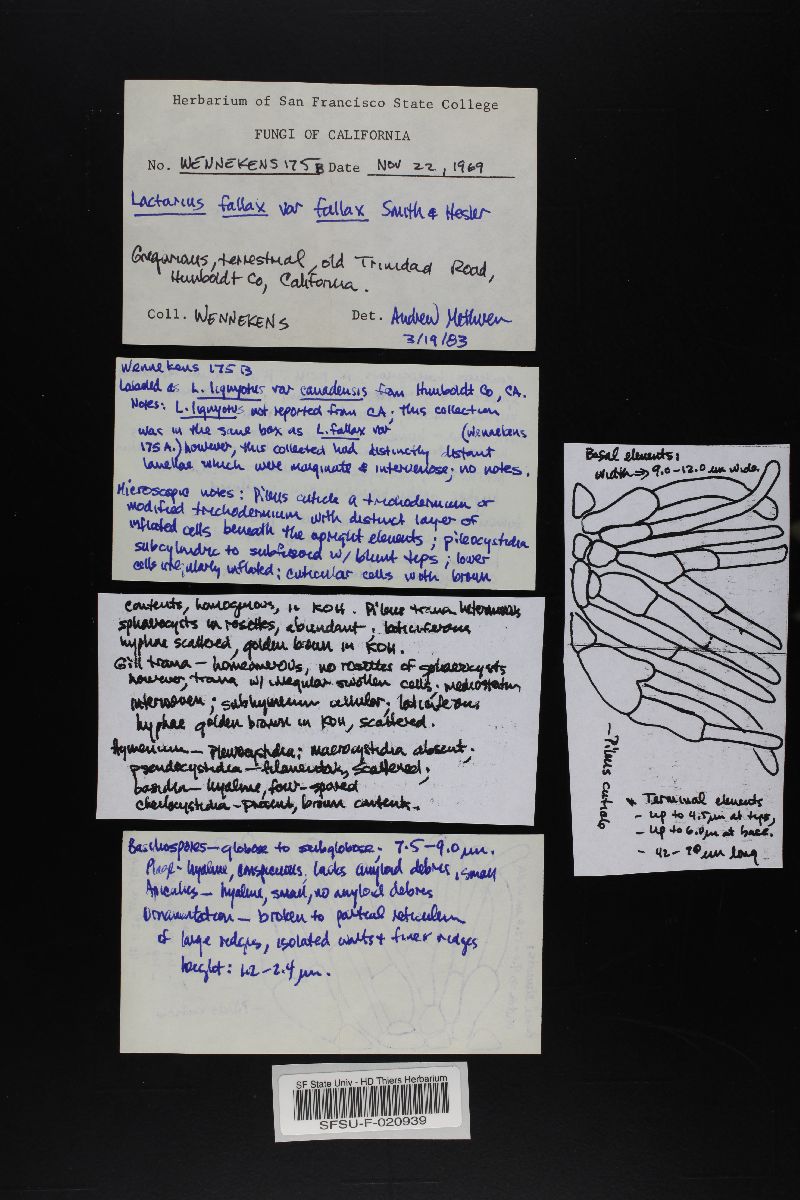 Herbarium of San Francisco State College
FUNGI OF CALIFORNIA
No. WENNEKENS 175B Date NOV 22, 1969
Lactarius fallax var fallax Smith & Hesler
Gregarious, terrestrial, old Trinidad Road,
Humboldt Co, California.
Coll. WENNEKENS Det. Andrew Methven
3/19/83
Wennekens 175 B
Labeled as L. lignyotus var canadensis from Humboldt Co, CA.
Notes: L. lignyotus not reported from CA; this collection
was in the same box as L. fallax var (Wennekens
175 A.) however, this collected had distinctly distant
lamellae which were marginate & intervenose; no notes.
Microscopic notes: Pileus cuticle a trichodermium or
modified trichodermium with distinct layer of
inflated cells beneath the upright elements; pileocystidia
subcylindric to subfusoid w/ blunt tips; lower
cells irregularly inflated; cuticular cells with brown
contents, homogenous, in KOH. Pileus trama heteromerous
sphaerocysts in rosettes, abundant; laticiferous
hyphae scattered, golden brown in KOH.
Gill trama - homoiomerous, no rosettes of sphaerocysts
however, trama w/ irregular swollen cells; mediostratum
interwoven; subhymenium cellular; laticiferous
hyphae golden brown in KOH, scattered.
Hymenium - Pleurocystidia: macrocystidia absent;
pseudocystidia - filamentous, scattered;
basidia - hyaline, four-spored
cheilocystidia - present, brown contents.
Basidiospores - globose to subglobose; 7.5-9.0 µm.
Plage - hyaline, conspicuous, lacks amyloid debris, small
Apiculus - hyaline, small, no amyloid debris
Ornamentation - broken to partial reticulum
of large ridges, isolated warts & finer ridges
height: 1.2-2.4 µm.
Basal elements:
width → 9.0-12.0 µm wide.
- Pileus cuticle
* Terminal elements
- up to 4.5 µm at tips,
- up to 6.0 µm at base.
- 42- µm long
SF State Univ - HD Thiers Herbarium
SFSU-F-020939